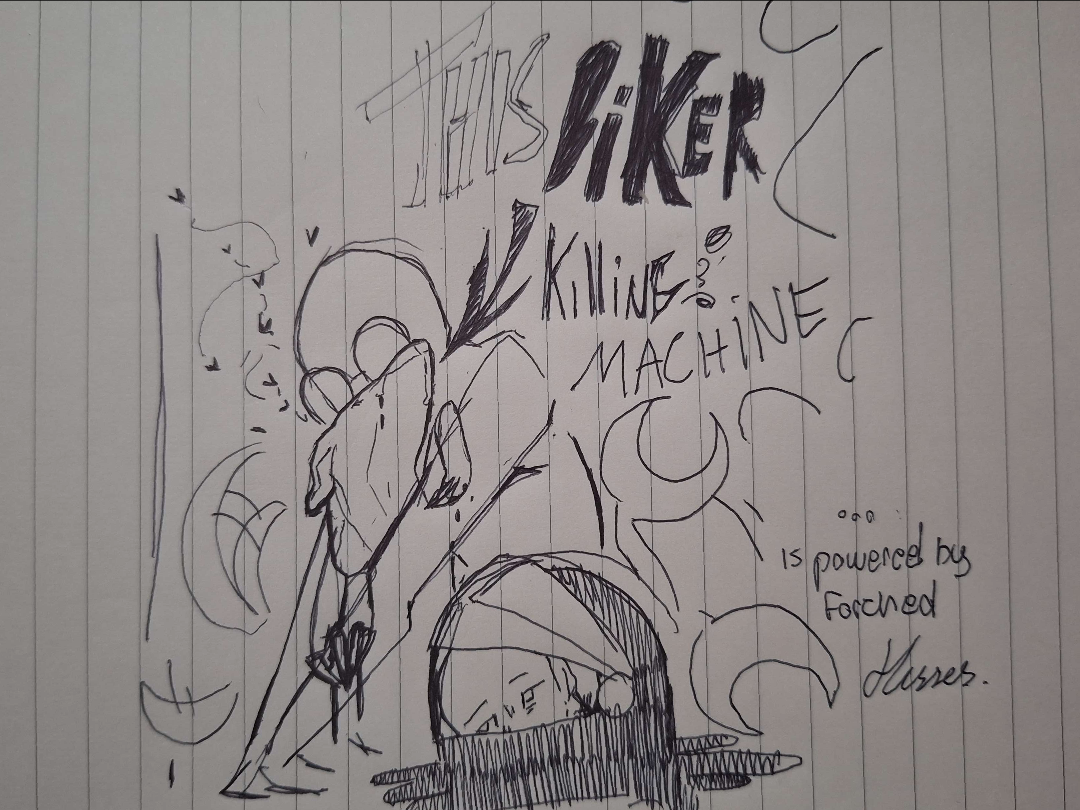 THIS BiKER
KilliNG
MACHiNE
...
is powered by
Forched
Kisses.